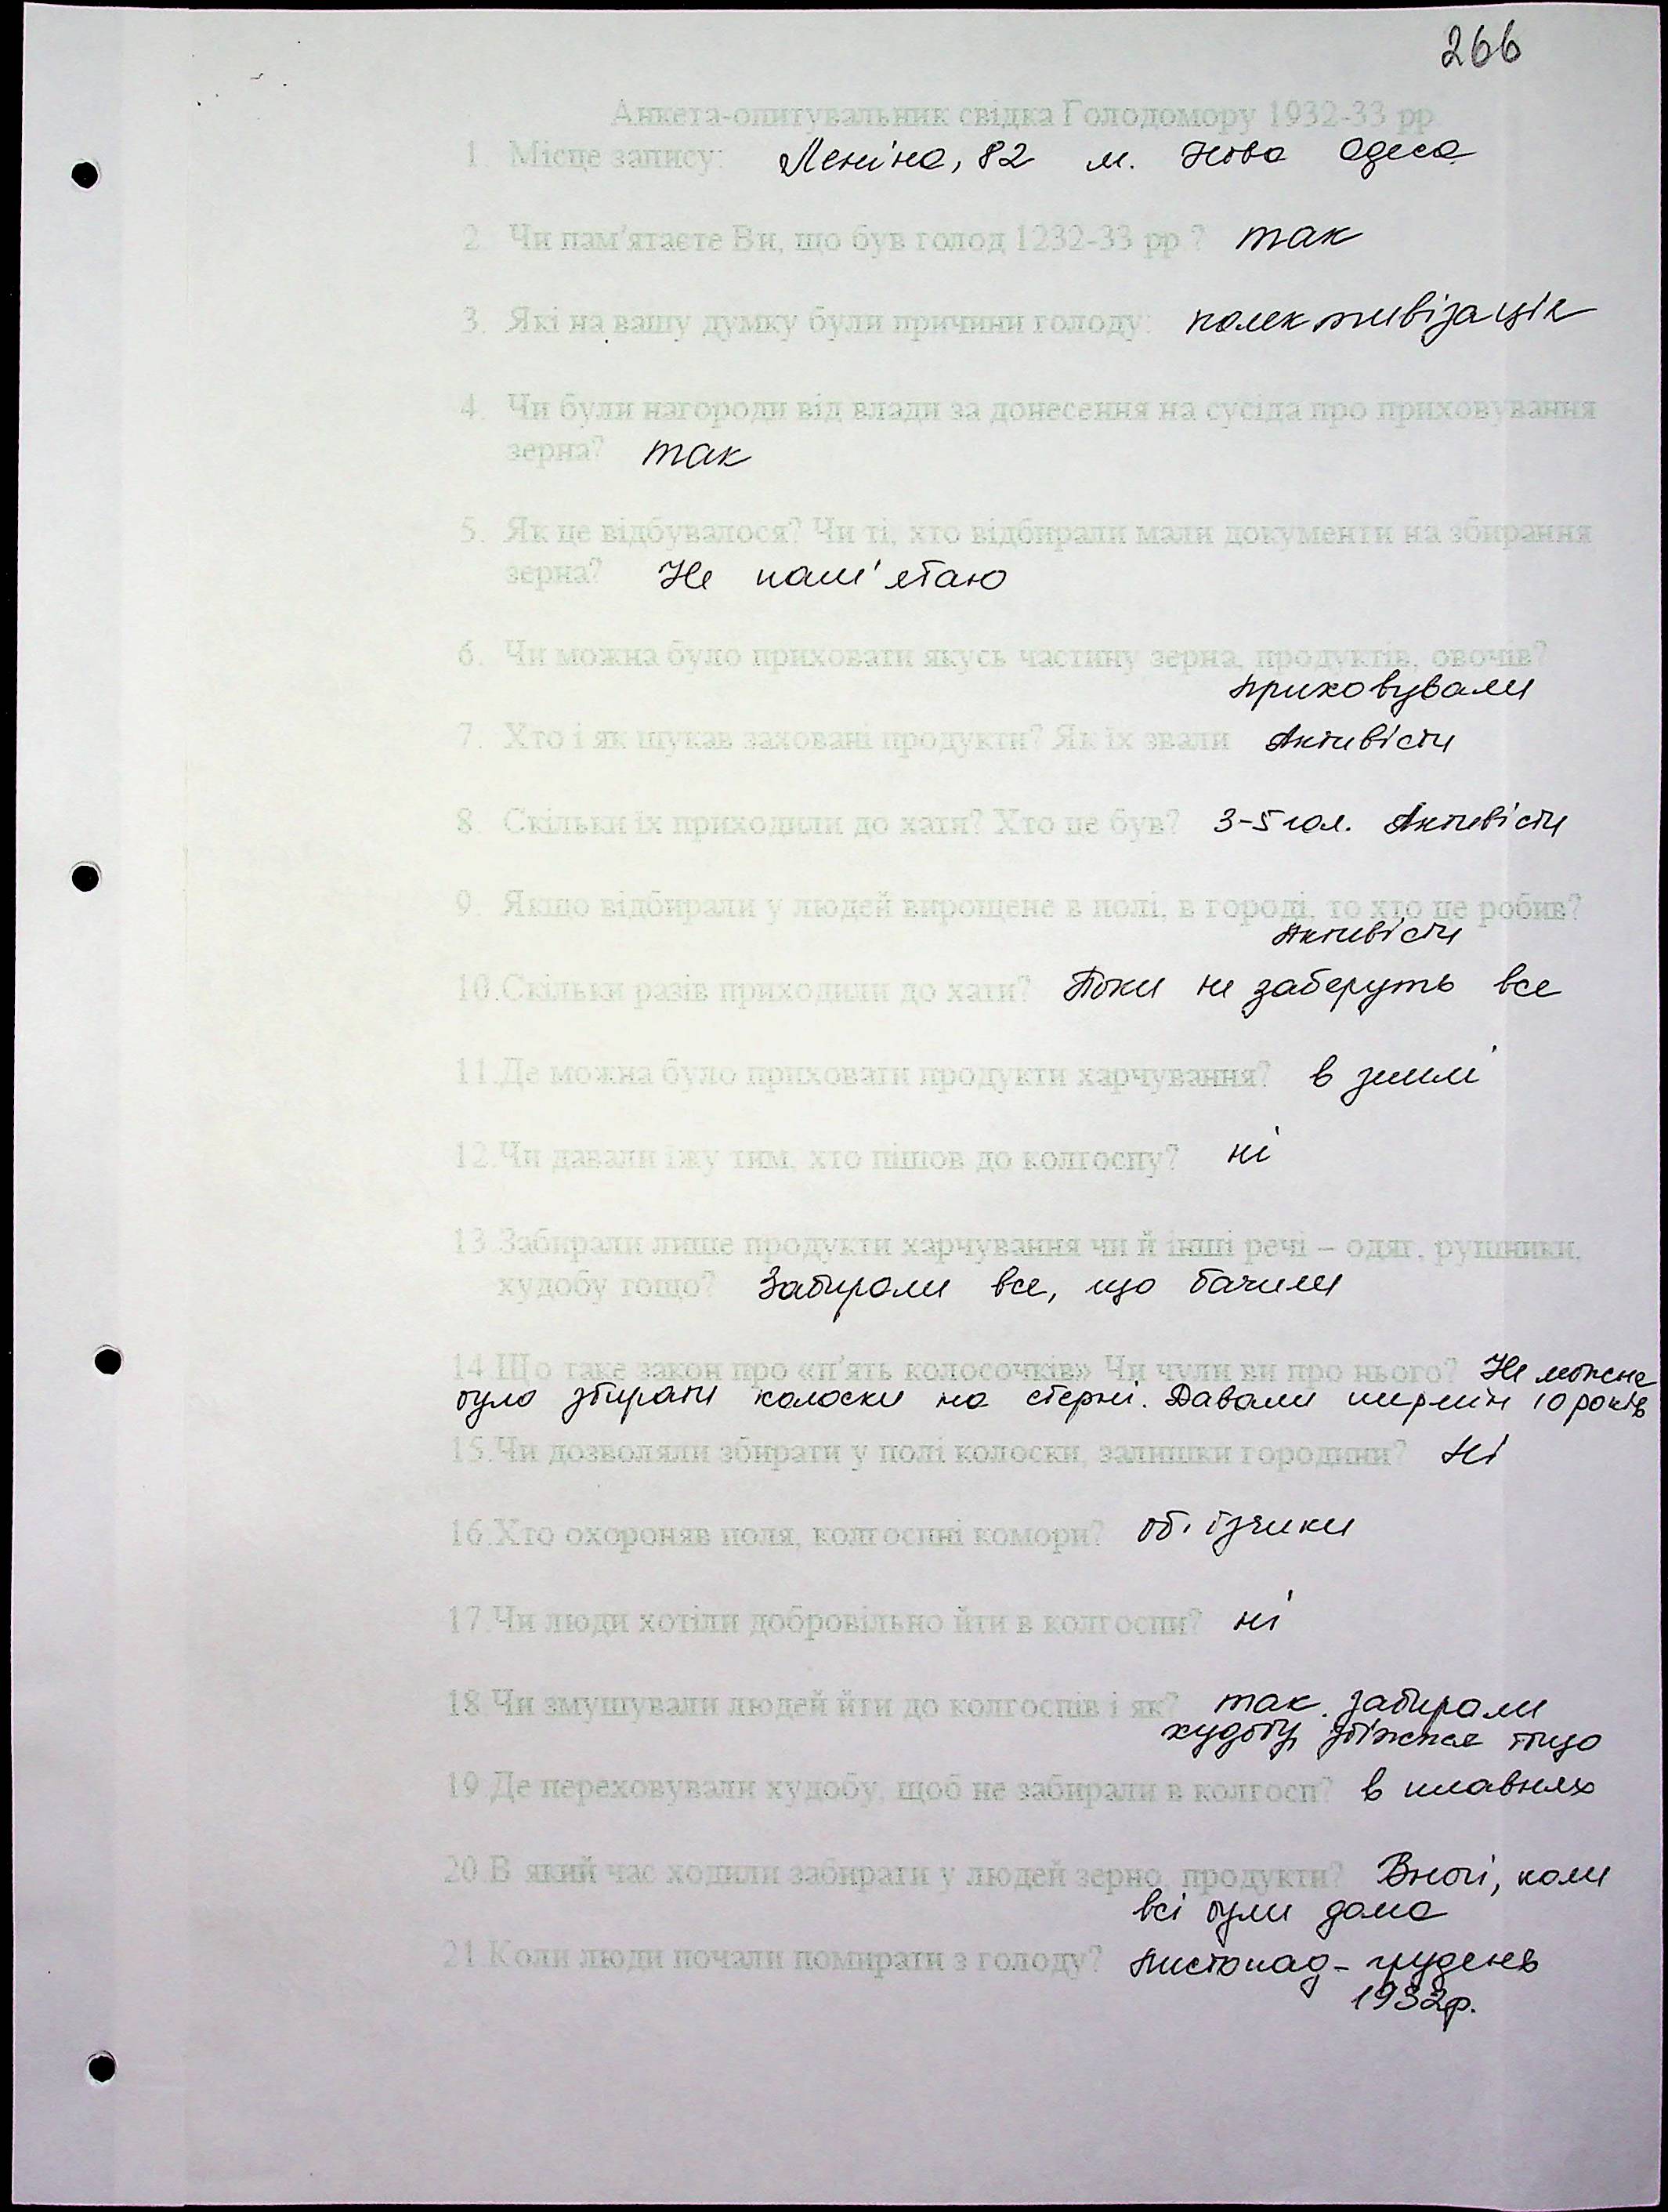 266
Анкета-опитувальник свідка Голодомору 1932-33 рр
1. Місце запису: Леніна, 82 м. Нова Одеса
2. Чи пам'ятаєте Ви, що був голод 1232-33 рр ? так
3. Які на вашу думку були причини голоду: колективізація
4. Чи були нагороди від влади за донесення на сусіда про приховування
зерна? так
5. Як це відбувалося? Чи ті, хто відбирали мали документи на збирання
зерна? Не пам'ятаю
6. Чи можна було приховати якусь частину зерна, продуктів, овочів?
приховували
7. Хто і як шукав заховані продукти? Як їх звали Активісти
8. Скільки їх приходили до хати? Хто це був? 3-5 чол. Активісти
9. Якщо відбирали у людей вирощене в полі, в городі, то хто це робив?
Активісти
10.Скільки разів приходили до хати? Поки не заберуть все
11.Де можна було приховати продукти харчування? в землі
12.Чи давали їжу тим, хто пішов до колгоспу? ні
13.Забирали лише продукти харчування чи й інші речі – одяг, рушники,
худобу тощо? Забирали все, що бачили
14.Що таке закон про «п'ять колосочків» Чи чули ви про нього? Не можна
було збирати колоски на стерні. Давали термін 10 років
15.Чи дозволяли збирати у полі колоски, залишки городини? Ні
16.Хто охороняв поля, колгоспні комори? об'їзчики
17.Чи люди хотіли добровільно йти в колгоспи? ні
18.Чи змушували людей йти до колгоспів і як? так. забирали
худобу, збіжжя тощо
19.Де переховували худобу, щоб не забирали в колгосп? в плавнях
20.В який час ходили забирати у людей зерно, продукти? Вночі, коли
всі були дома
21.Коли люди почали помирати з голоду? Листопад - грудень
1932р.